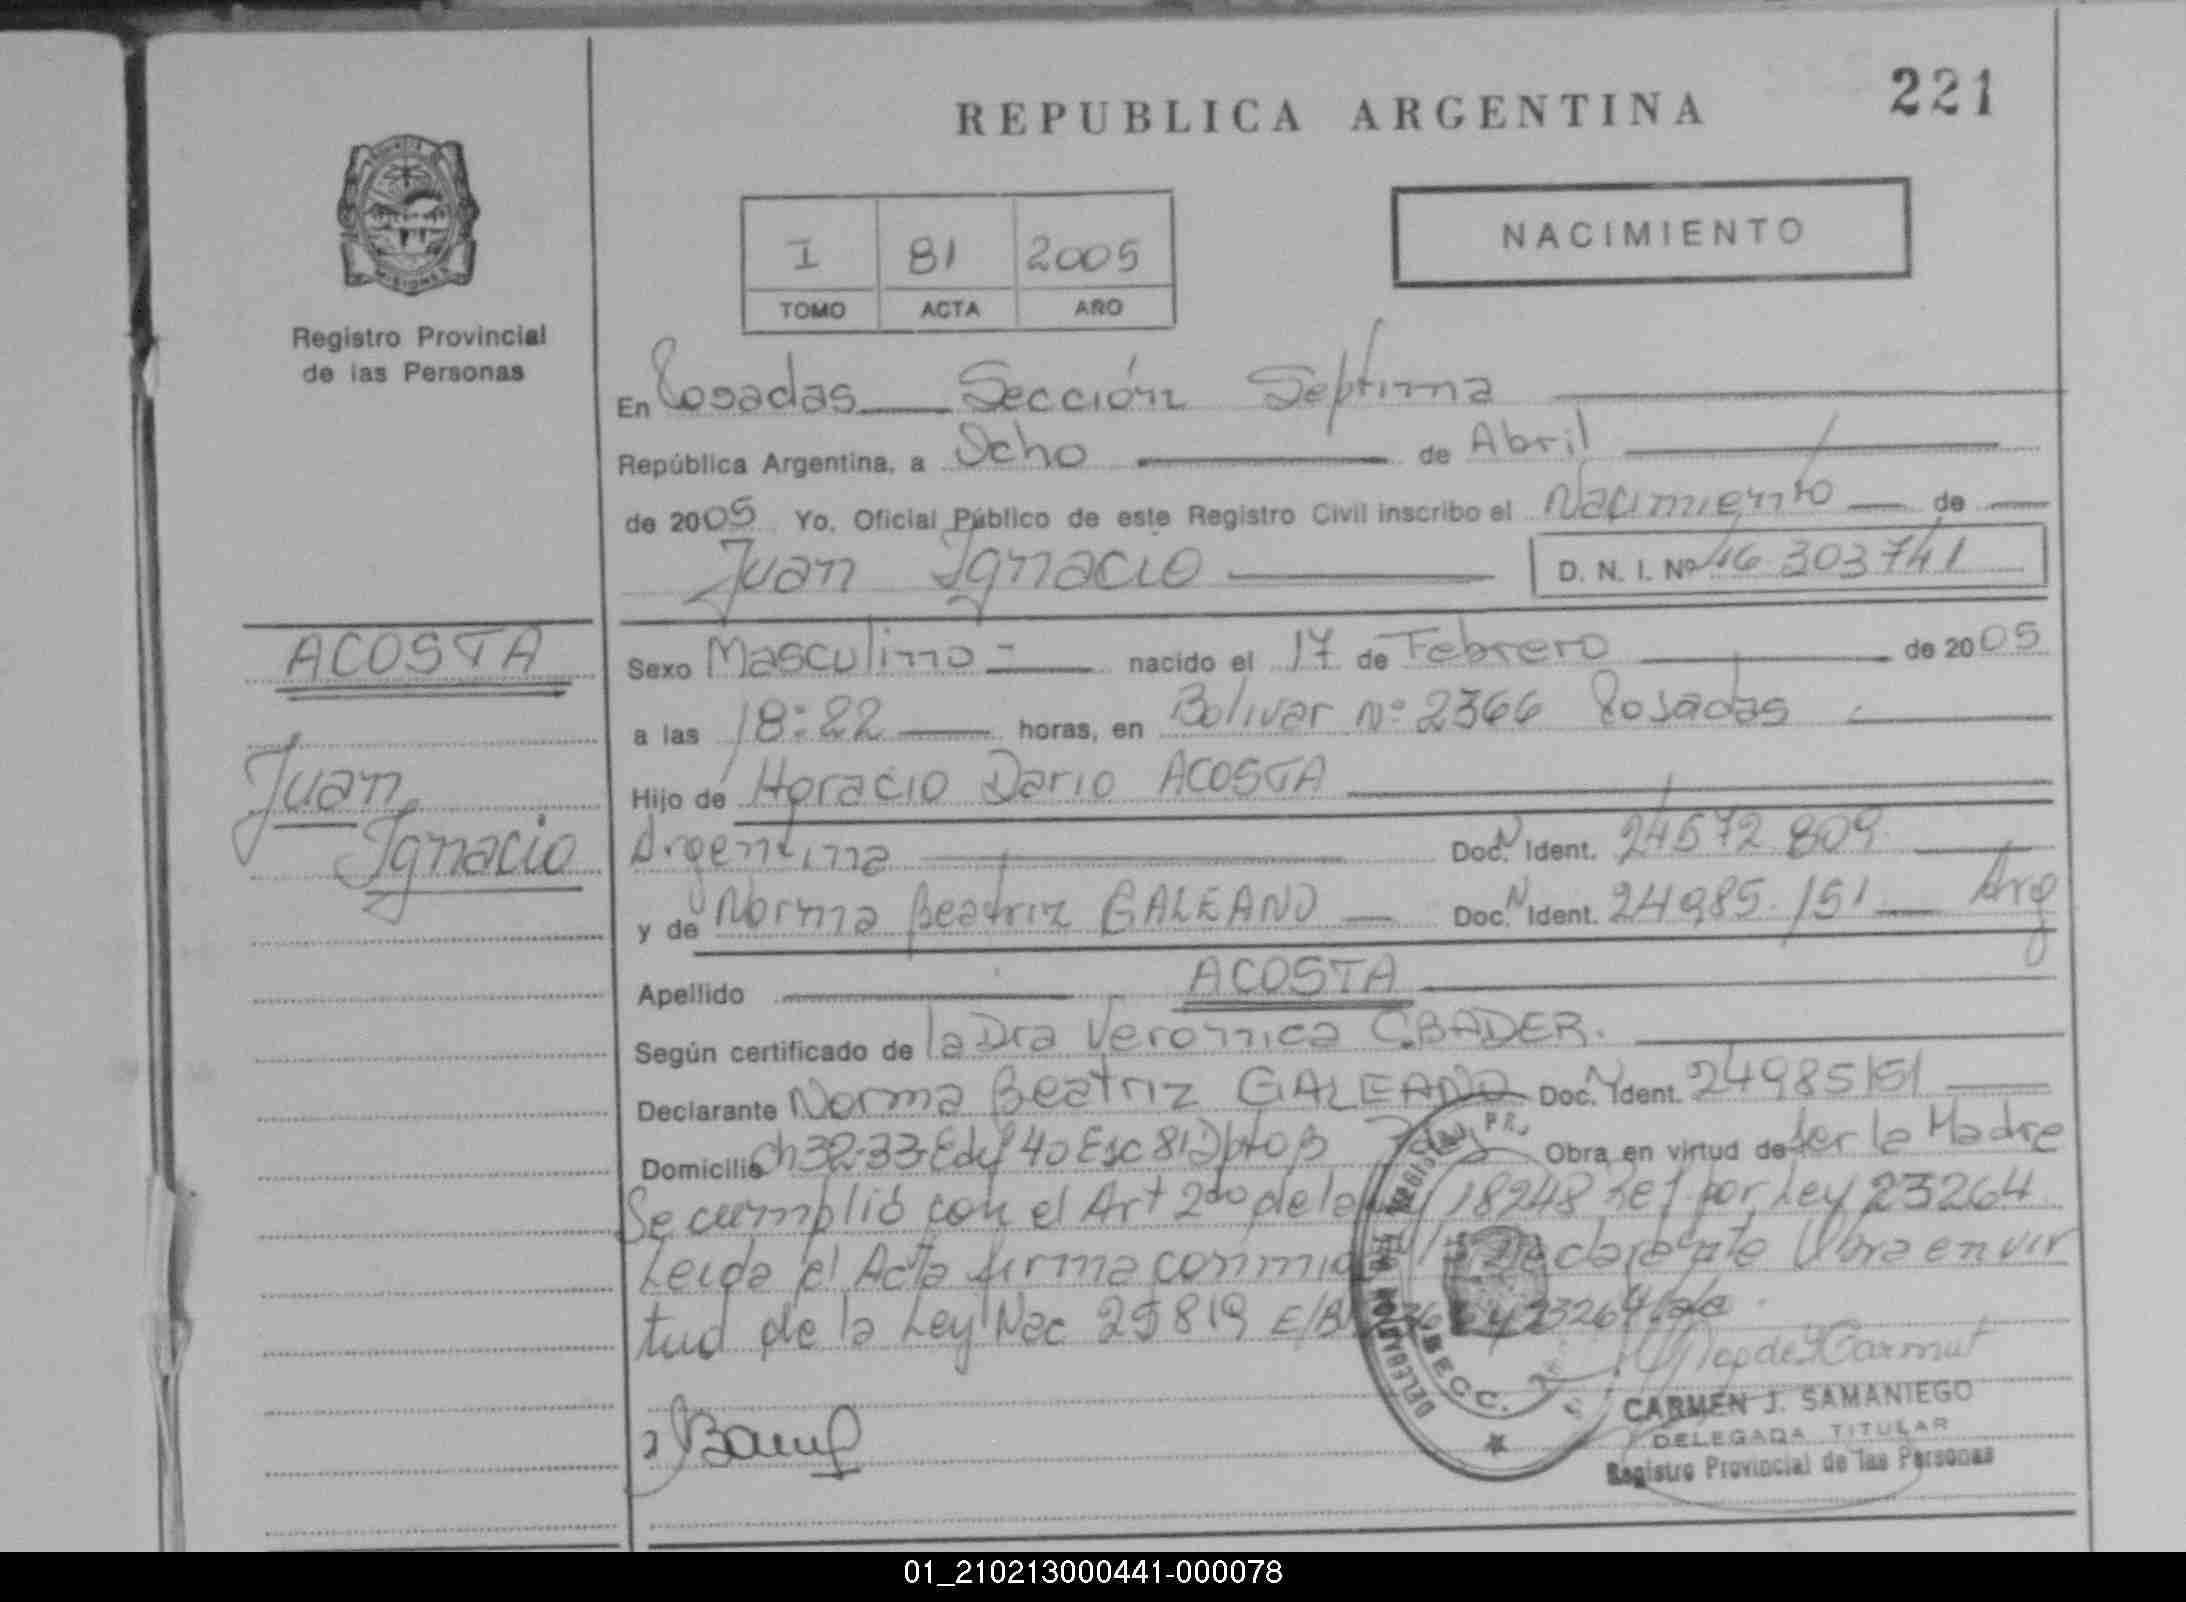 REPUBLICA ARGENTINA
221
NACIMIENTO
I 81 2005
TOMO ACTA AÑO
Registro Provincial
de las Personas
En Posadas Sección Septima
República Argentina, a Ocho de Abril
de 2005 Yo, Oficial Público de este Registro Civil inscribo el Nacimiento de
Juan Ignacio
D. N. I. Nº 46 303741
ACOSTA
Juan
Ignacio
Sexo Masculino nacido el 17 de Febrero de 2005
a las 18:22 horas, en Bolivar Nº 2366 Posadas
Hijo de Horacio Dario ACOSTA
Argentina Doc. N Ident. 24572 809
y de Norma Beatriz GALEANO Doc. N Ident. 24985.151 Arg
Apellido ACOSTA
Según certificado de la Dra Veronica C. BADER.
Declarante Norma Beatriz GALEANO Doc. N Ident. 24985151
Domicilio Ch 32-33 Edif 40 Esc 81 Dpto B Obra en virtud de ser la Madre
Se cumplió con el Art 2do de la Ley 18248 Ref por Ley 23264
Leida el Acta firma conmigo Declarante Obra en vir
tud de la Ley Nac 25819 23264
CARMEN J. SAMANIEGO
DELEGADA TITULAR
Registro Provincial de las Personas
01_210213000441-000078